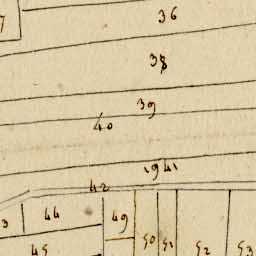 7
36
38
39
40
1941
42
3
44
49
45
50
51
52
53